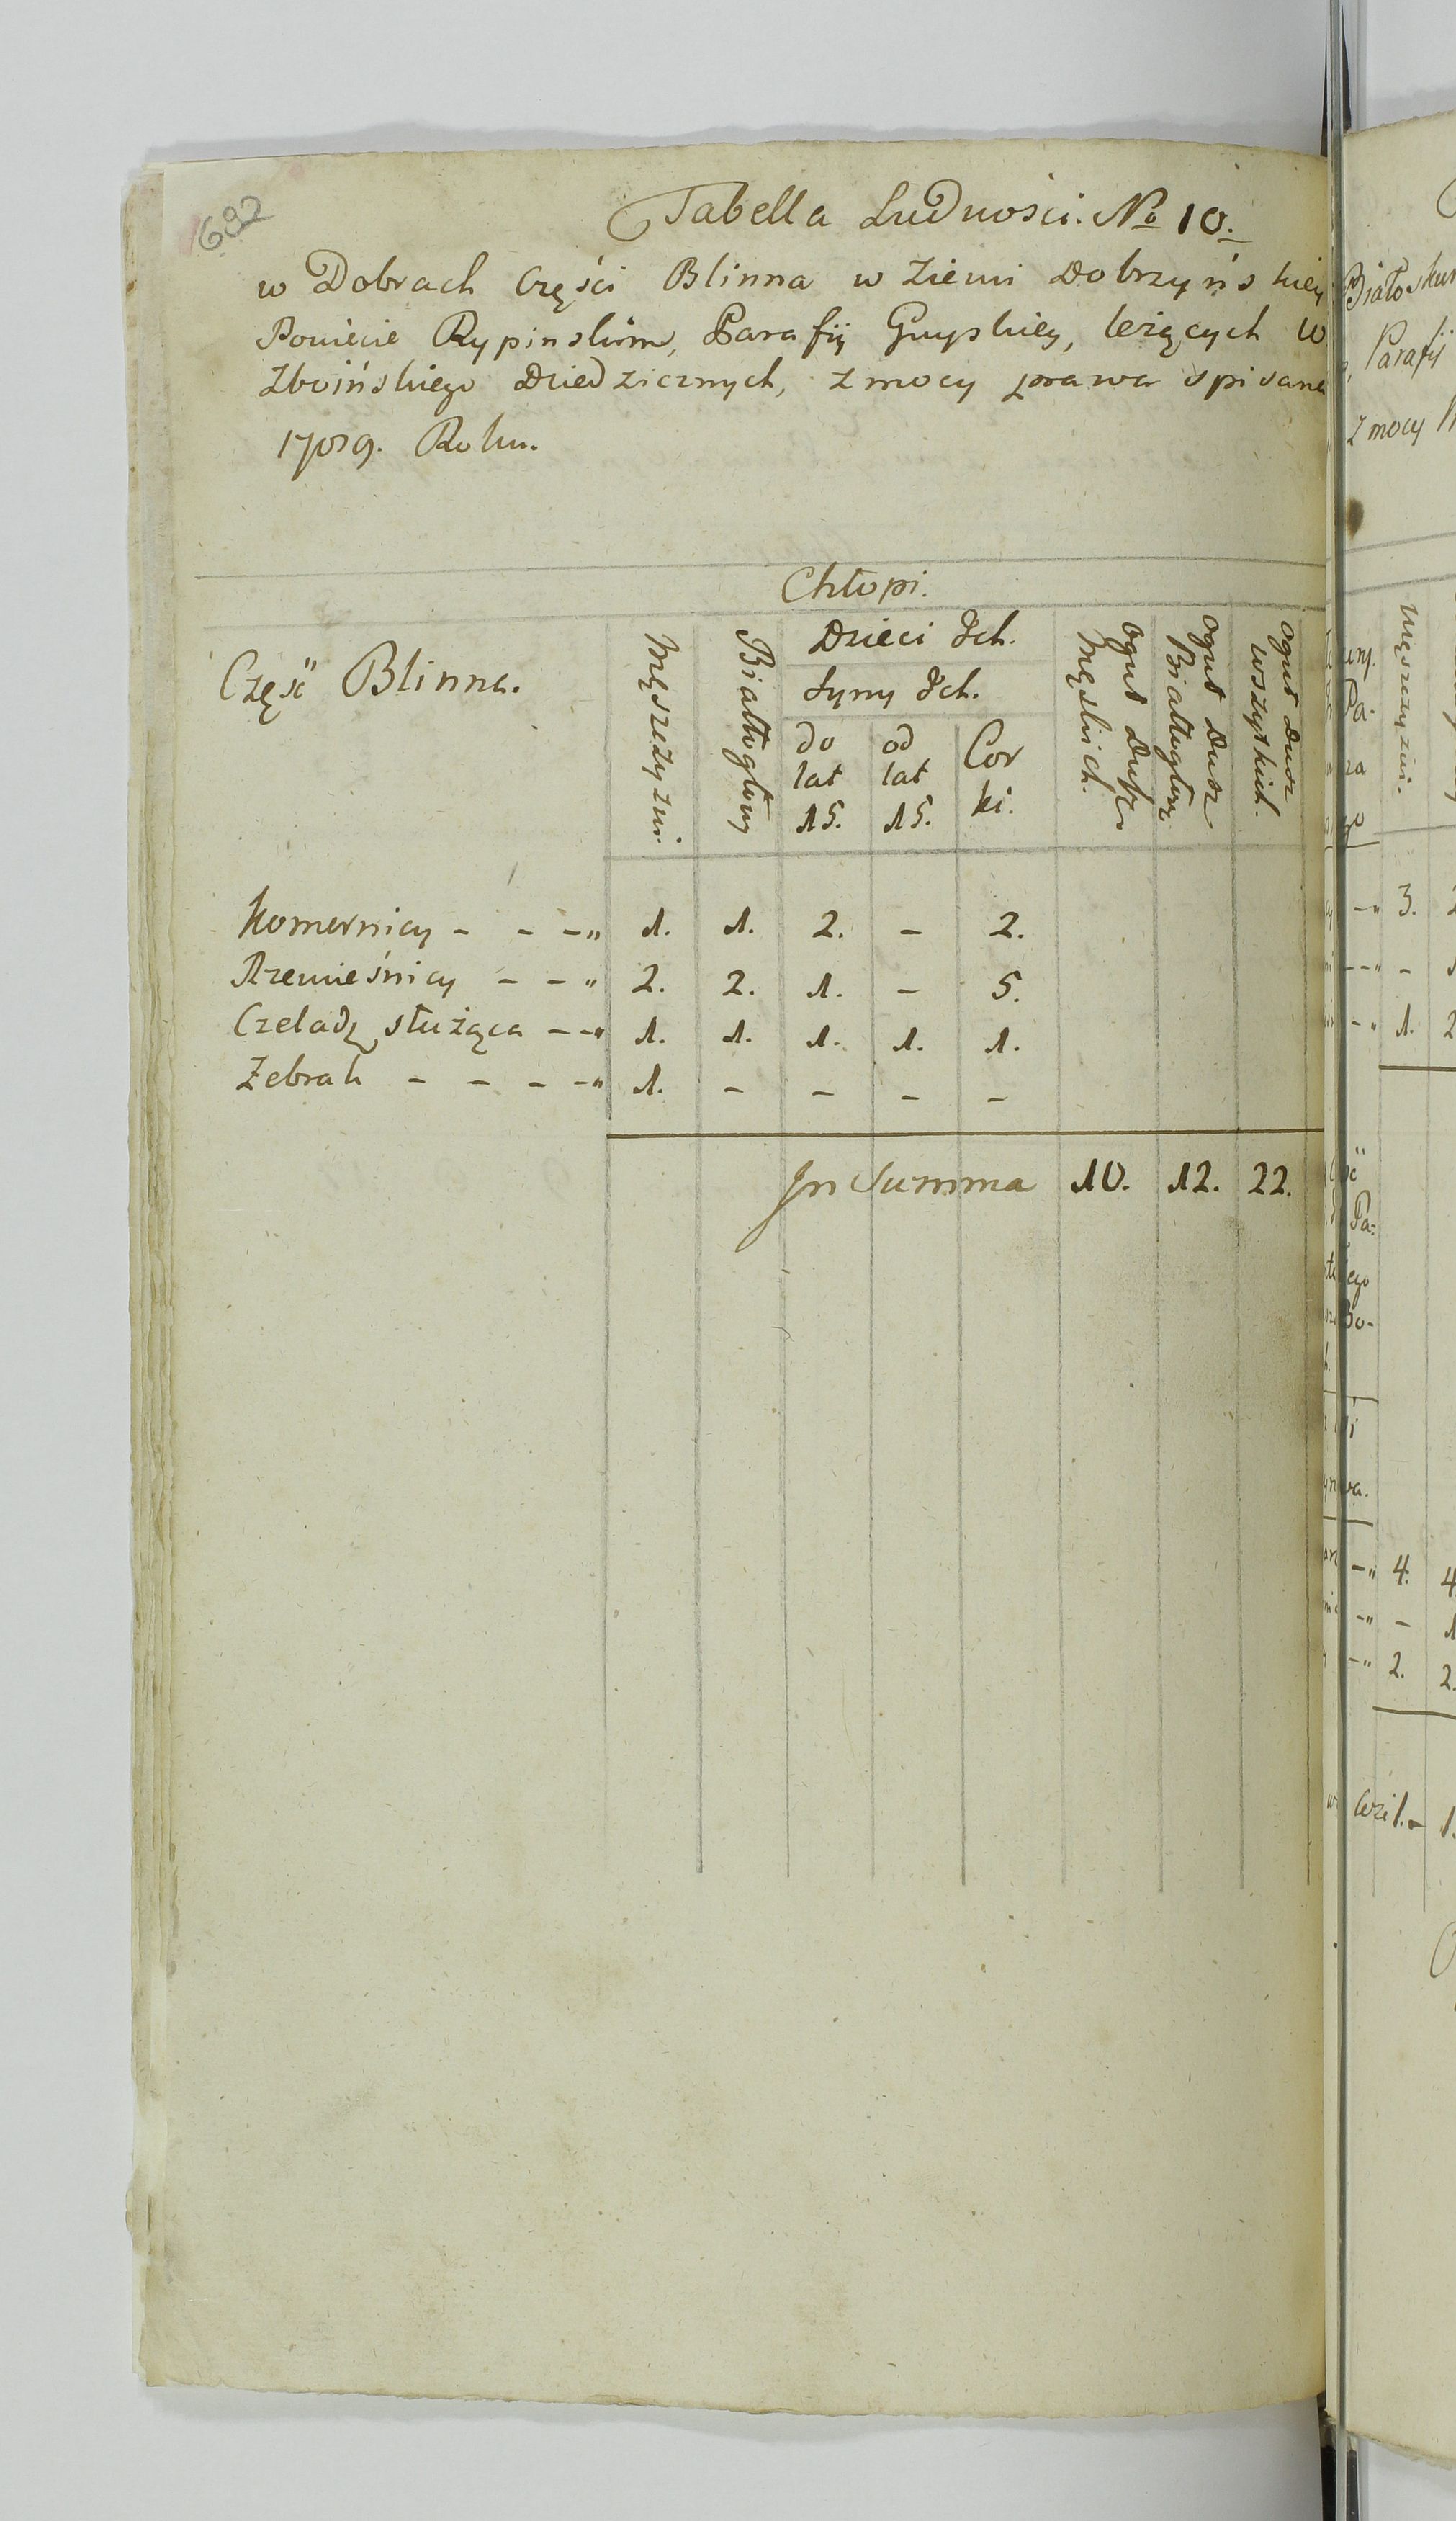 692
Tabella Ludności. No 10.
w Dobrach Części Blinna w Ziemi Dobrzyńskiey
Powiecie Rypinskim, Parafij Guyskiey, leżących W
Zboińskiego Dziedzicznych, z mocy prawa spisana
1789. Roku.
Chłopi.
Część Blinna.
Męszczyzni.
Białłogłowy
Dzieci Ich.
Syny Ich.
do lat 15.
od lat 15.
Cor ki.
ogut Dusz Męskich.
ogut Dusz Białłogłow
ogut Dusz wszytkich.
Komornicy - - - „ 1. 1. 2. - 2.
Rzemieśnicy - - „ 2. 2. 1. - 5.
Czeladz służąca - - „ 1. 1. 1. 1. 1.
Zebrak - - - - „ 1. - - - -
In Summa 10. 12. 22.
Parafij
z mocy
Męszczyzni.
- „ 3. 2
- - „ -
- „ 1. 2
- „ 4. 4
- „ - 1
- „ 2. 2.